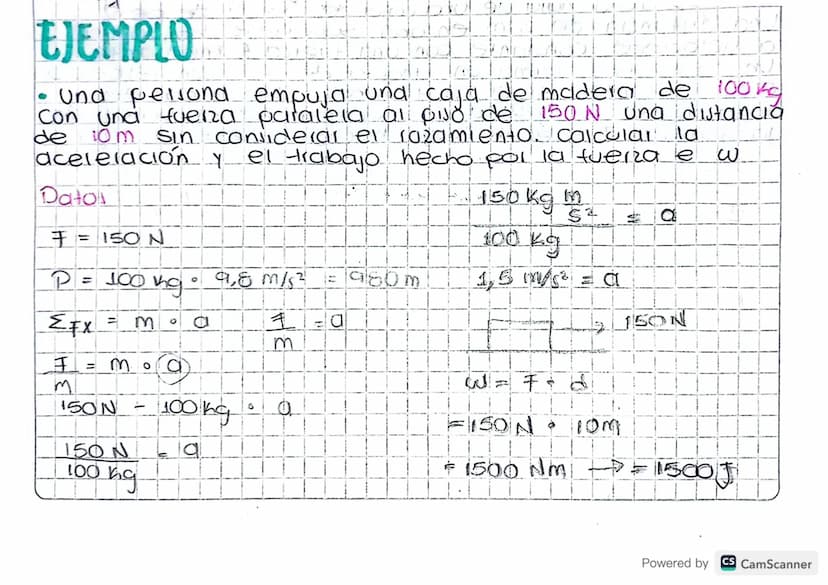 EJEMPLO
• Una persona empuja una caja de madera de 100 Kg
con una fuerza paralela al piso de 150 N una distancia
de 10m sin considerar el rozamiento. calcular la
aceleración y el trabajo hecho por la fuerza e w
Datos
F = 150 N
P = 100 kg • 9,8 m/s² = 980 m
ΣFx = m • a F/m = a
F/m = m • a
150N - 100kg • a
150 N / 100 Kg = a
150 Kg m/s² / 100 kg = a
1,5 m/s² = a
150N
W = F • d
= 150 N • 10m
= 1500 Nm → = 1500 J
Powered by CS CamScanner